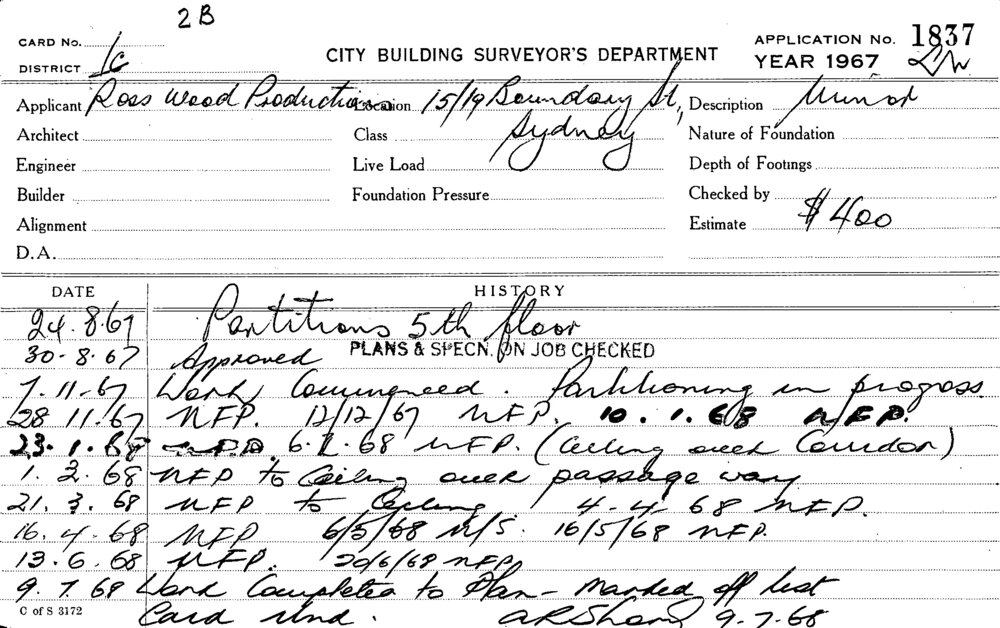 2B
CARD No.
DISTRICT 1c
CITY BUILDING SURVEYOR'S DEPARTMENT
APPLICATION No. 1837
YEAR 1967
Applicant Ross Wood Productions Location 15/19 Boundary St, Description Minor
Architect Class Sydney Nature of Foundation
Engineer Live Load Depth of Footings
Builder Foundation Pressure Checked by
Alignment Estimate $400
D.A.
DATE HISTORY
24.8.67 Partitions 5th floor
30.8.67 Approved PLANS & SPECN. ON JOB CHECKED
7.11.67 Work Commenced. Partitioning in progress.
28 11.67 NFP. 12/12/67 NFP. 10.1.68 NFP.
23.1.68 6.2.68 NFP. (Ceiling over Corridor)
1.3.68 NFP to Ceiling over passage way
21.3.68 NFP to Ceiling. 4-4-68 NFP.
16.4.68 NFP 6/5/68 N/S. 16/5/68 NFP.
13.6.68 NFP. 20/6/68 NFP.
9.7.68 Work Completed to Plan - Marked off list
C of S 3172
Card 9.7.68